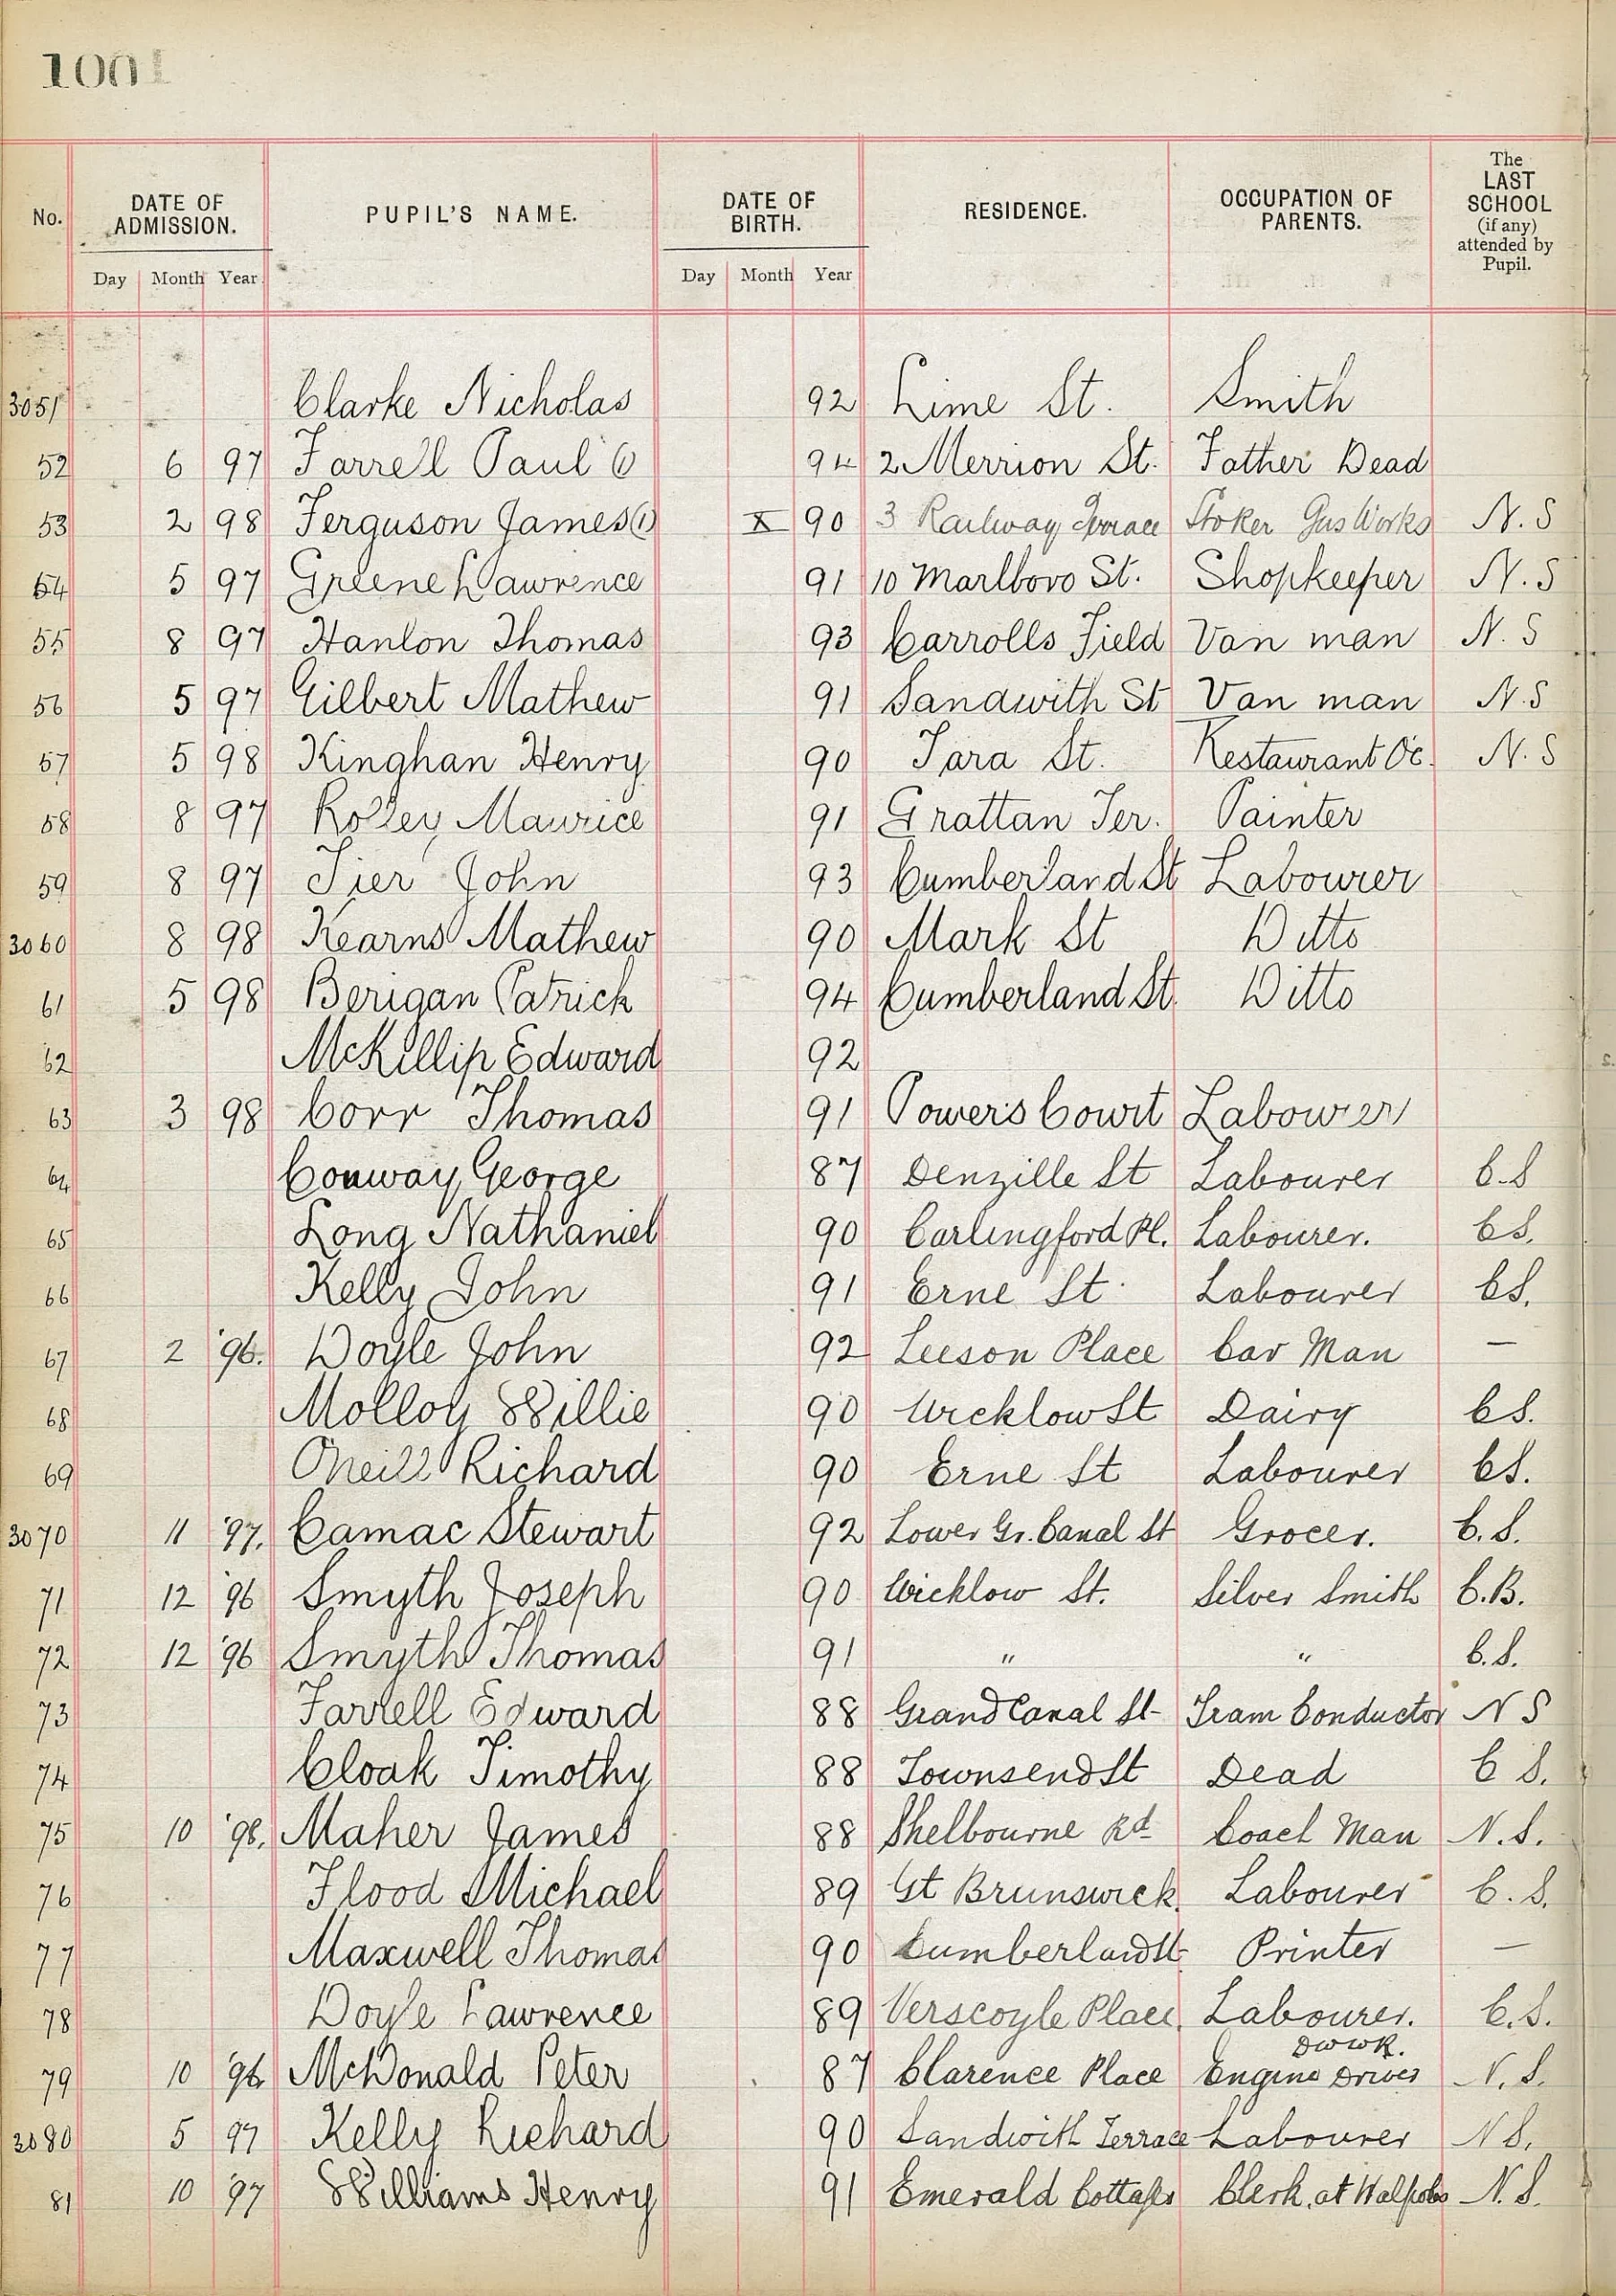 1001
No. DATE OF ADMISSION. PUPIL'S NAME. DATE OF BIRTH. RESIDENCE. OCCUPATION OF PARENTS. The LAST SCHOOL (if any) attended by Pupil.
Day Month Year Day Month Year
3051 Clarke Nicholas 92 Lime St. Smith
52 6 97 Farrell Paul (1) 94 2 Merrion St. Father Dead
53 2 98 Ferguson James (1) X 90 3 Railway Terrace Stoker Gas Works N.S
54 5 97 Greene Lawrence 91 10 Marlboro St. Shopkeeper N.S
55 8 97 Hanlon Thomas 93 Carrolls Field Van man N.S
56 5 97 Gilbert Mathew 91 Sandwith St Van man N.S
57 5 98 Kinghan Henry 90 Tara St. Restaurant N.S
58 8 97 Maurice 91 Grattan Ter. Painter
59 8 97 Tier John 93 Cumberland St Labourer
3060 8 98 Kearns Mathew 90 Mark St Ditto
61 5 98 Berigan Patrick 94 Cumberland St. Ditto
62 McKillip Edward 92
63 3 98 Corr Thomas 91 Powers Court Labourer
64 Conway George 87 Denzille St Labourer C.S
65 Long Nathaniel 90 Carlingford Pl. Labourer. CS.
66 Kelly John 91 Erne St. Labourer CS.
67 2 '96. Doyle John 92 Leeson Place Car Man —
68 Molloy Willie 90 Wicklow St Dairy CS.
69 Oneill Richard 90 Erne St Labourer CS.
3070 11 '97. Camac Stewart 92 Lower Gr. Canal St Grocer. C.S.
71 12 '96 Smyth Joseph 90 Wicklow St. Silver Smith C.B.
72 12 '96 Smyth Thomas 91 " " C.S.
73 Farrell Edward 88 Grand Canal St- Tram Conductor N S
74 Cloak Timothy 88 Townsend St Dead C S.
75 10 '98. Maher James 88 Shelbourne Rd Coach Man N.S.
76 Flood Michael 89 Gt Brunswick Labourer C.S.
77 Maxwell Thomas 90 Cumberland St Printer —
78 Doyle Lawrence 89 Verscoyle Place. Labourer. C.S.
DWWR.
79 10 '96. McDonald Peter 87 Clarence Place Engine Driver N.S.
3080 5 97 Kelly Richard 90 Sandwith Terrace Labourer N S.
81 10 '97 Williams Henry 91 Emerald Cottages Clerk at Walpoles N.S.